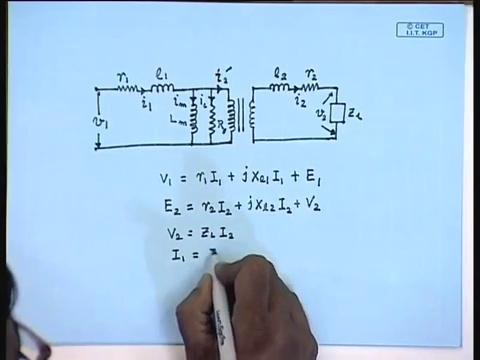 © CET
I.I.T. KGP
r₁ l₁ i₂' l₂ r₂
i₁ iₘ i₂
v₁ Lₘ v₂ Z_L
V₁ = r₁I₁ + jXₗ₁I₁ + E₁
E₂ = r₂I₂ + jXₗ₂I₂ + V₂
V₂ = Z_L I₂
I₁ =